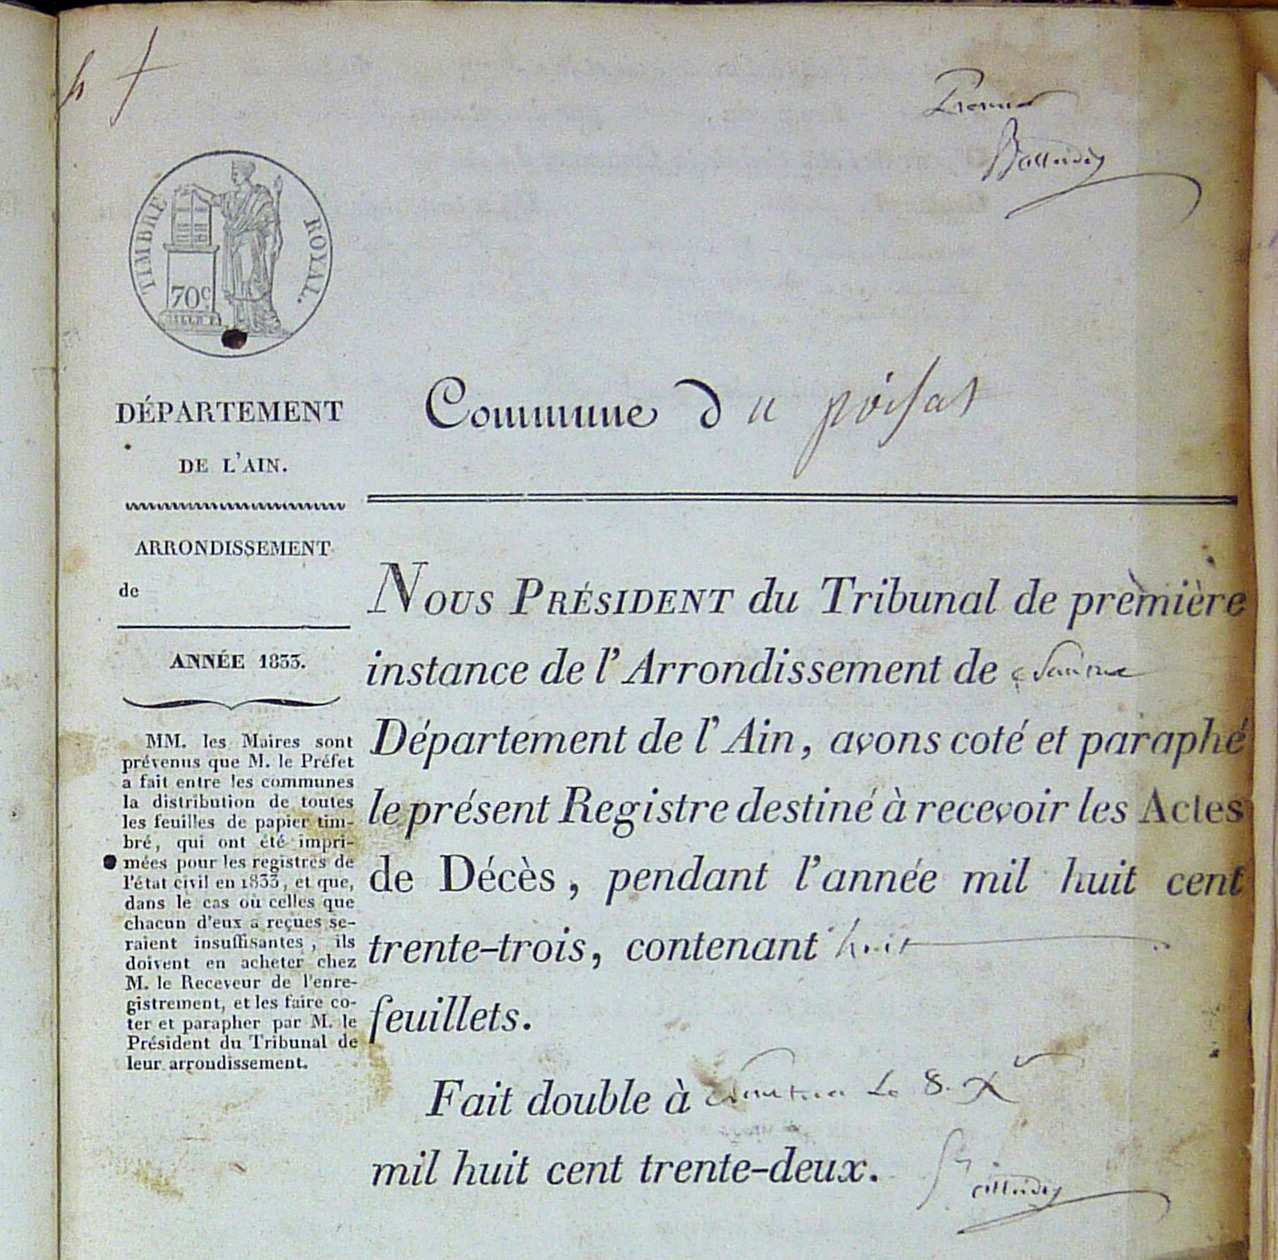 Premier
TIMBRE ROYAL.
70c
DÉPARTEMENT
DE L'AIN.
ARRONDISSEMENT
de
ANNÉE 1833.
MM. les Maires sont
prévenus que M. le Préfet
a fait entre les communes
la distribution de toutes
les feuilles de papier tim-
bré, qui ont été impri-
mées pour les registres de
l'état civil en 1833, et que,
dans le cas où celles que
chacun d'eux a reçues se-
raient insuffisantes, ils
doivent en acheter chez
M. le Receveur de l'enre-
gistrement, et les faire co-
ter et parapher par M. le
Président du Tribunal de
leur arrondissement.
Commune du poisat
NOUS PRÉSIDENT du Tribunal de première
instance de l'Arrondissement de Nantua
Département de l'Ain, avons coté et paraphé
le présent Registre destiné à recevoir les Actes
de Décès, pendant l'année mil huit cent
trente-trois, contenant huit
feuillets.
Fait double à Nantua le 8. Xr
mil huit cent trente-deux.